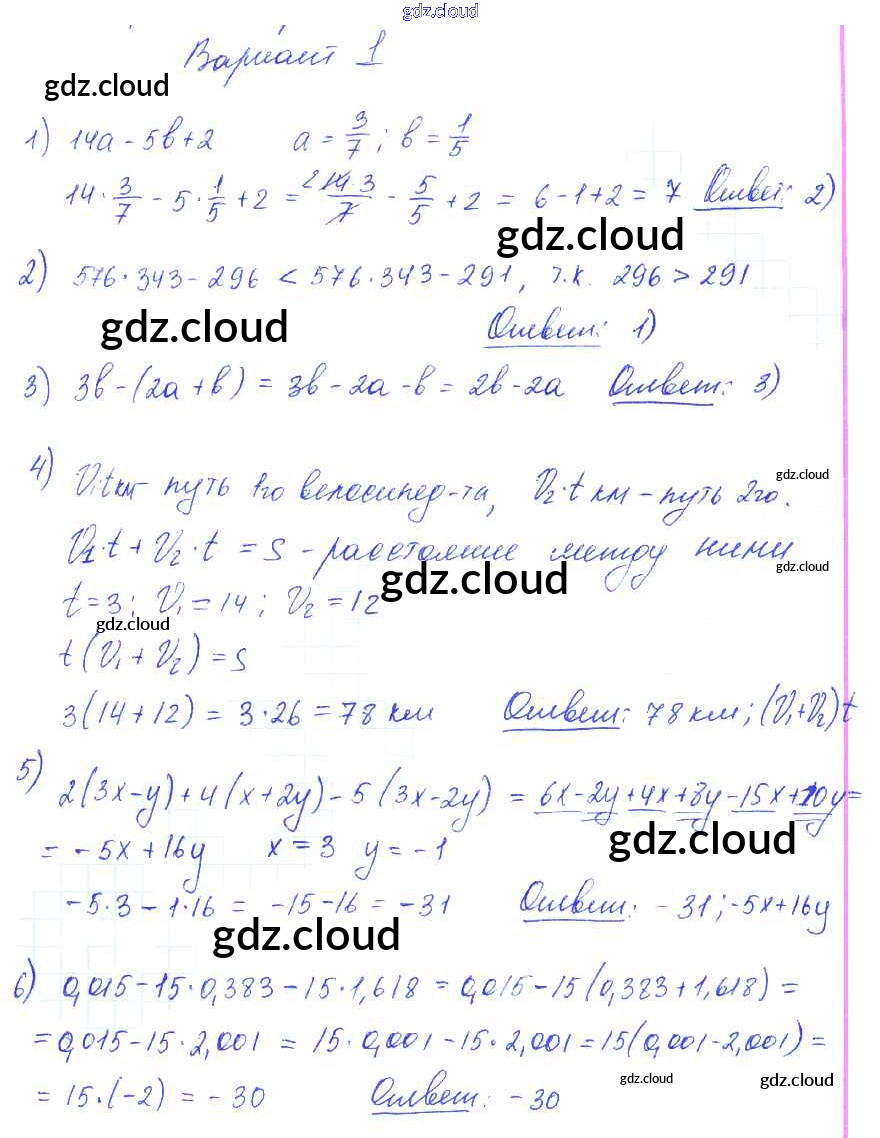 gdz.cloud
Вариант 1
gdz.cloud
1) 14a - 5b + 2 a = 3/7 ; b = 1/5
14 · 3/7 - 5 · 1/5 + 2 = 2 14·3/7 - 5/5 + 2 = 6 - 1 + 2 = 7 Ответ: 2)
gdz.cloud
2) 576 · 343 - 296 < 576 · 343 - 291, т.к. 296 > 291
gdz.cloud Ответ: 1)
3) 3b - (2a + b) = 3b - 2a - b = 2b - 2a Ответ: 3)
gdz.cloud
4) V₁t км путь 1го велосипед-та, V₂·t км - путь 2го.
V₁·t + V₂·t = S - расстояние между ними
gdz.cloud gdz.cloud
t = 3; V₁ = 14; V₂ = 12
gdz.cloud
t(V₁ + V₂) = S
3(14 + 12) = 3 · 26 = 78 км Ответ: 78 км; (V₁+V₂)t
5) 2(3x - y) + 4(x + 2y) - 5(3x - 2y) = 6x - 2y + 4x + 8y - 15x + 10y =
= - 5x + 16y x = 3 y = -1 gdz.cloud
-5 · 3 - 1 · 16 = -15 - 16 = -31 Ответ: - 31; -5x + 16y
gdz.cloud
6) 0,015 - 15 · 0,383 - 15 · 1,618 = 0,015 - 15(0,383 + 1,618) =
= 0,015 - 15 · 2,001 = 15 · 0,001 - 15 · 2,001 = 15(0,001 - 2,001) =
= 15 · (-2) = - 30 Ответ: - 30 gdz.cloud gdz.cloud